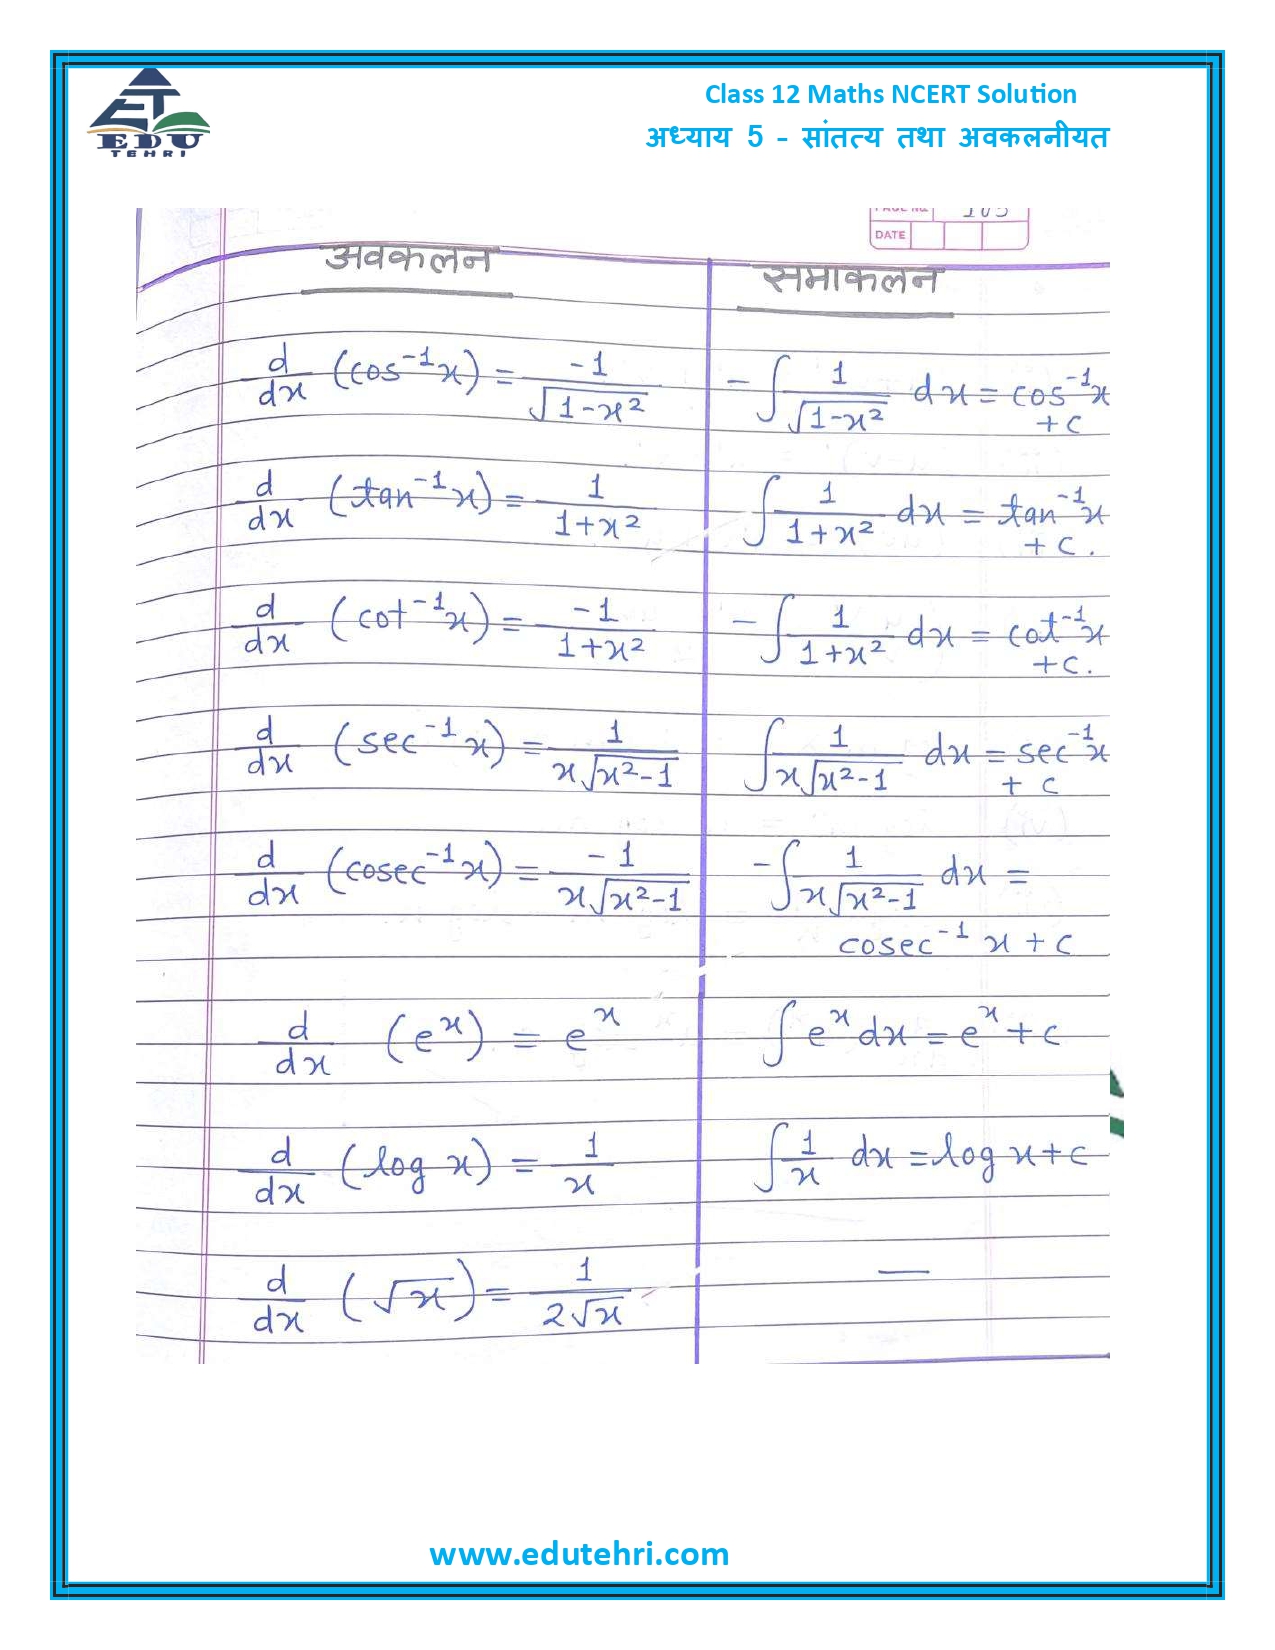 EDU
TEHRI
Class 12 Maths NCERT Solution
अध्याय 5 - सांतत्य तथा अवकलनीयत
103
DATE
अवकलन
समाकलन
d/dx (cos⁻¹x) = -1/√(1-x²)
-∫ 1/√(1-x²) dx = cos⁻¹x
+c
d/dx (tan⁻¹x) = 1/(1+x²)
∫ 1/(1+x²) dx = tan⁻¹x
+ c.
d/dx (cot⁻¹x) = -1/(1+x²)
-∫ 1/(1+x²) dx = cot⁻¹x
+c.
d/dx (sec⁻¹x) = 1/(x√(x²-1))
∫ 1/(x√(x²-1)) dx = sec⁻¹x
+ c
d/dx (cosec⁻¹x) = -1/(x√(x²-1))
-∫ 1/(x√(x²-1)) dx =
cosec⁻¹ x + c
d/dx (eˣ) = eˣ
∫ eˣ dx = eˣ + c
d/dx (log x) = 1/x
∫ 1/x dx = log x + c
d/dx (√x) = 1/(2√x)
—
www.edutehri.com